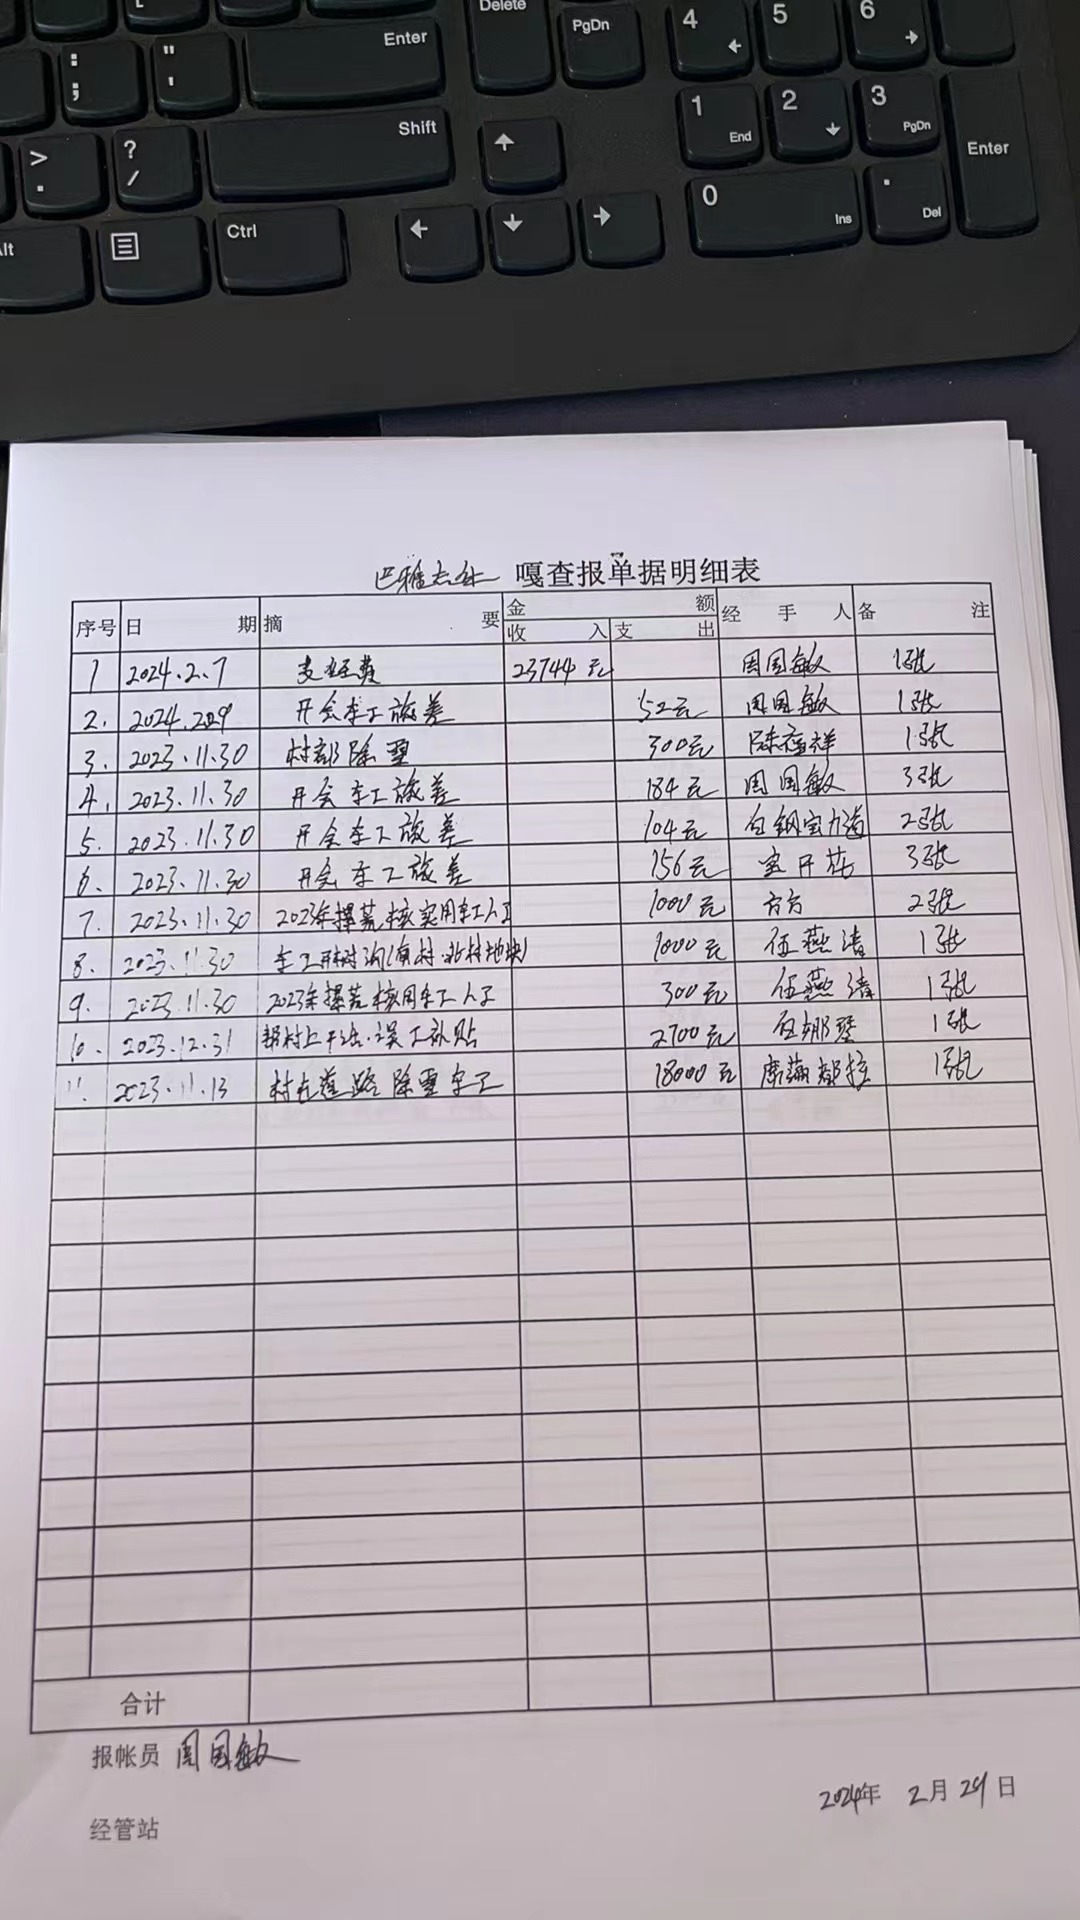 Delete
PgDn
4
5
6
Enter
" '
: ;
Shift
1 End
2
3 PgDn
Enter
> .
? /
0 Ins
. Del
Ctrl
lt
嘎查报单据明细表
序号 日期 摘要 金额 经手人 备注
收入 支出
1 2024.2.7 支经费 23744元 周国敏 1张
2. 2024.2.29 开会车工旅差 52元 周国敏 1张
3. 2023.11.30 村部除雪 300元 陈福祥 1张
4. 2023.11.30 开会车工旅差 184元 周国敏 3张
5. 2023.11.30 开会车工旅差 104元 包钢宝力道 2张
6. 2023.11.30 开会车工旅差 156元 宝开花 3张
7. 2023.11.30 2023年撂荒核实用车工人工 1000元 方方 2张
8. 2023.11.30 车工开树沟(原村.北村地块) 1000元 伍燕清 1张
9. 2023.11.30 2023年撂荒核用车工人工 300元 伍燕清 1张
10. 2023.12.31 帮村上干活.误工补贴 2700元 包娜 1张
11. 2023.11.13 村屯道路除雪车工 18000元 席满都拉 1张
合计
报帐员 周国敏
2024年 2月29日
经管站